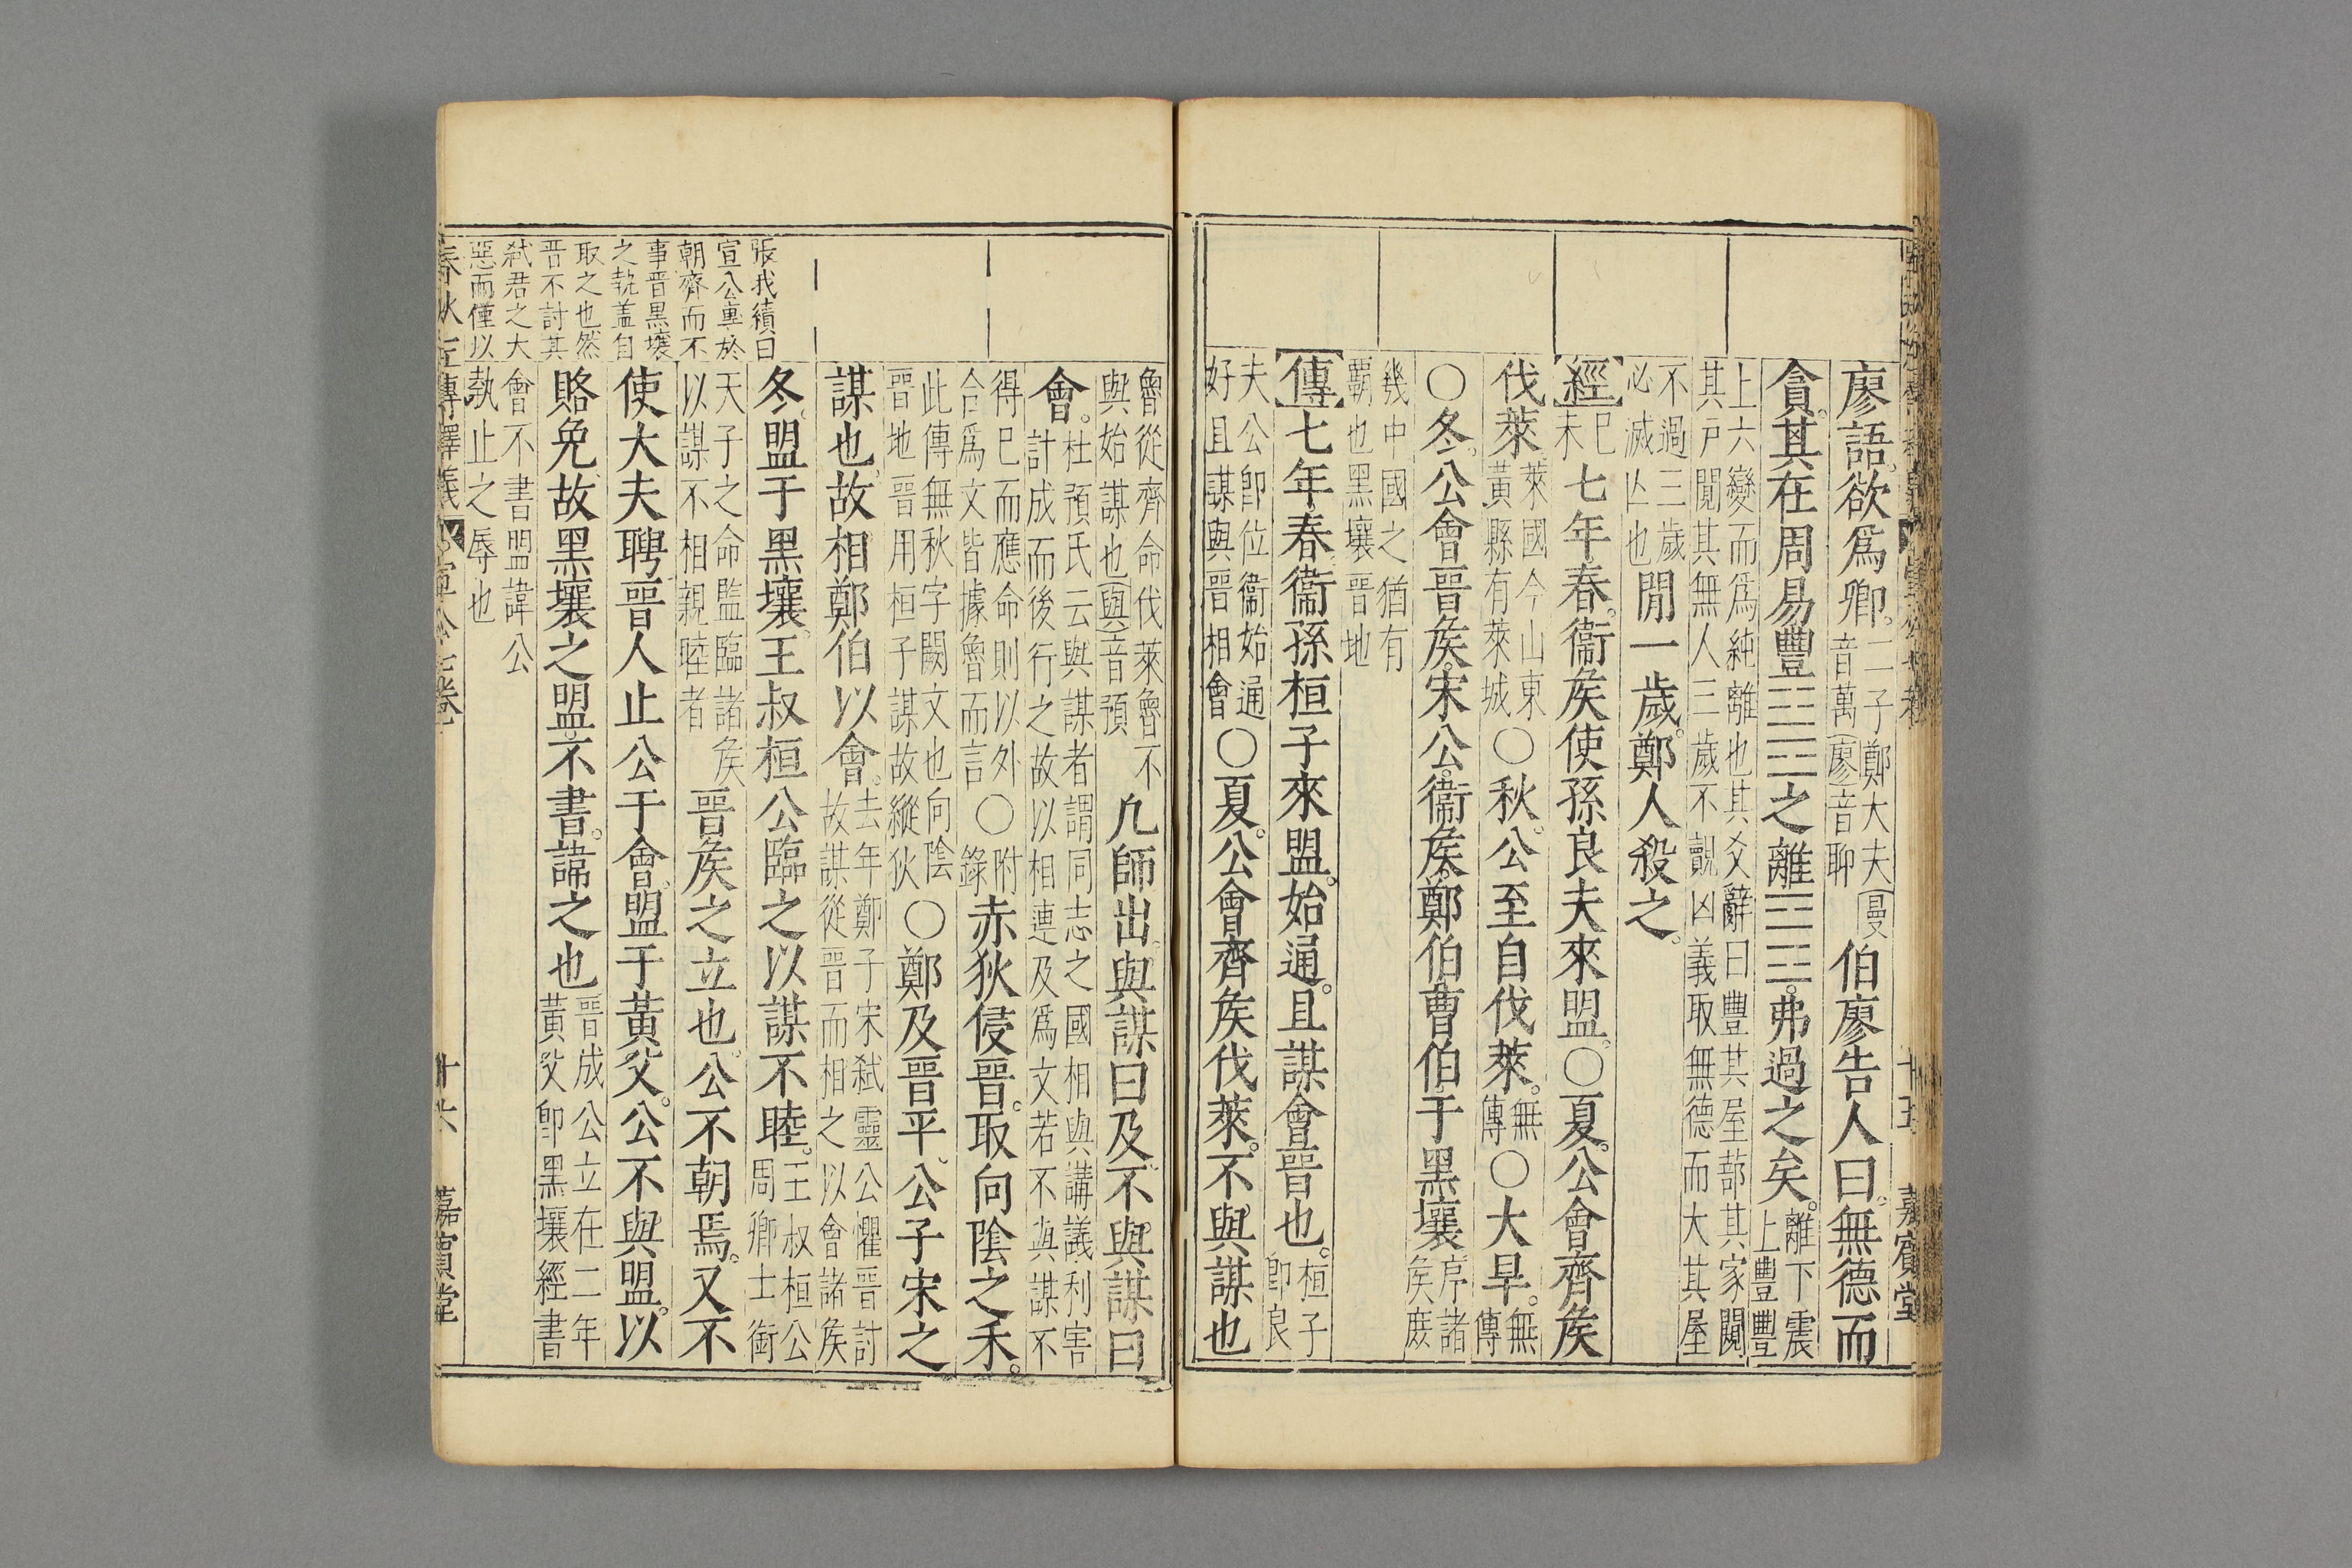 廖語欲爲卿。二子鄭大夫(曼)音萬(廖)音聊伯廖告人曰。無德而
貪。其在周易豐䷶之離䷝。弗過之矣。離下震上豐豐
上六變而爲純離也其爻辭曰豐其屋蔀其家闚其戸闃其無人三歲不覿凶義取無德而大其屋
不過三歲必滅亾也閒一歲。鄭人殺之。
【經】巳未七年春。衞矦使孫良夫來盟。〇夏。公會齊矦
伐萊。萊國今山東黃縣有萊城〇秋。公至自伐萊。無傳〇大旱。無傳
〇冬。公會晉矦。宋公。衞矦。鄭伯。曹伯于黑壤序諸矦庶
幾中國之猶有覇也黑壤晉地
【傳】七年春。衞孫桓子來盟。始通。且謀會晉也。桓子卽良
夫公卽位衞始通好且謀與晉相會〇夏。公會齊矦伐萊。不與謀也
嘉賓堂
張我績曰
宣公專於
朝齊而不
事晉黑壤
之執蓋自
取之也然
晉不討其
弑君之大
惡而僅以
魯從齊命伐萊魯不與始謀也(與)音預凢師出。與謀曰及。不與謀曰
會。杜預氏云與謀者謂同志之國相與講議利害計成而後行之故以相連及爲文若不與謀不
得已而應命則以外合爲文皆據魯而言〇附錄赤狄侵晉。取向陰之禾。
此傳無秋字闕文也向陰晉地晉用桓子謀故縱狄〇鄭及晉平。公子宋之
謀也。故相鄭伯以會。去年鄭子宋弑靈公懼晉討故謀從晉而相之以會諸矦
冬。盟于黑壤。王叔桓公臨之以謀不睦。王叔桓公周卿士銜
天子之命監臨諸矦以謀不相親睦者晉矦之立也。公不朝焉。又不
使大夫聘。晉人止公于會。盟于黃父。公不與盟。以
賂免。故黑壤之盟。不書。諱之也晉成公立在二年黃父卽黑壤經書
會不書盟諱公執止之辱也
春秋左傳
十六
嘉賓堂